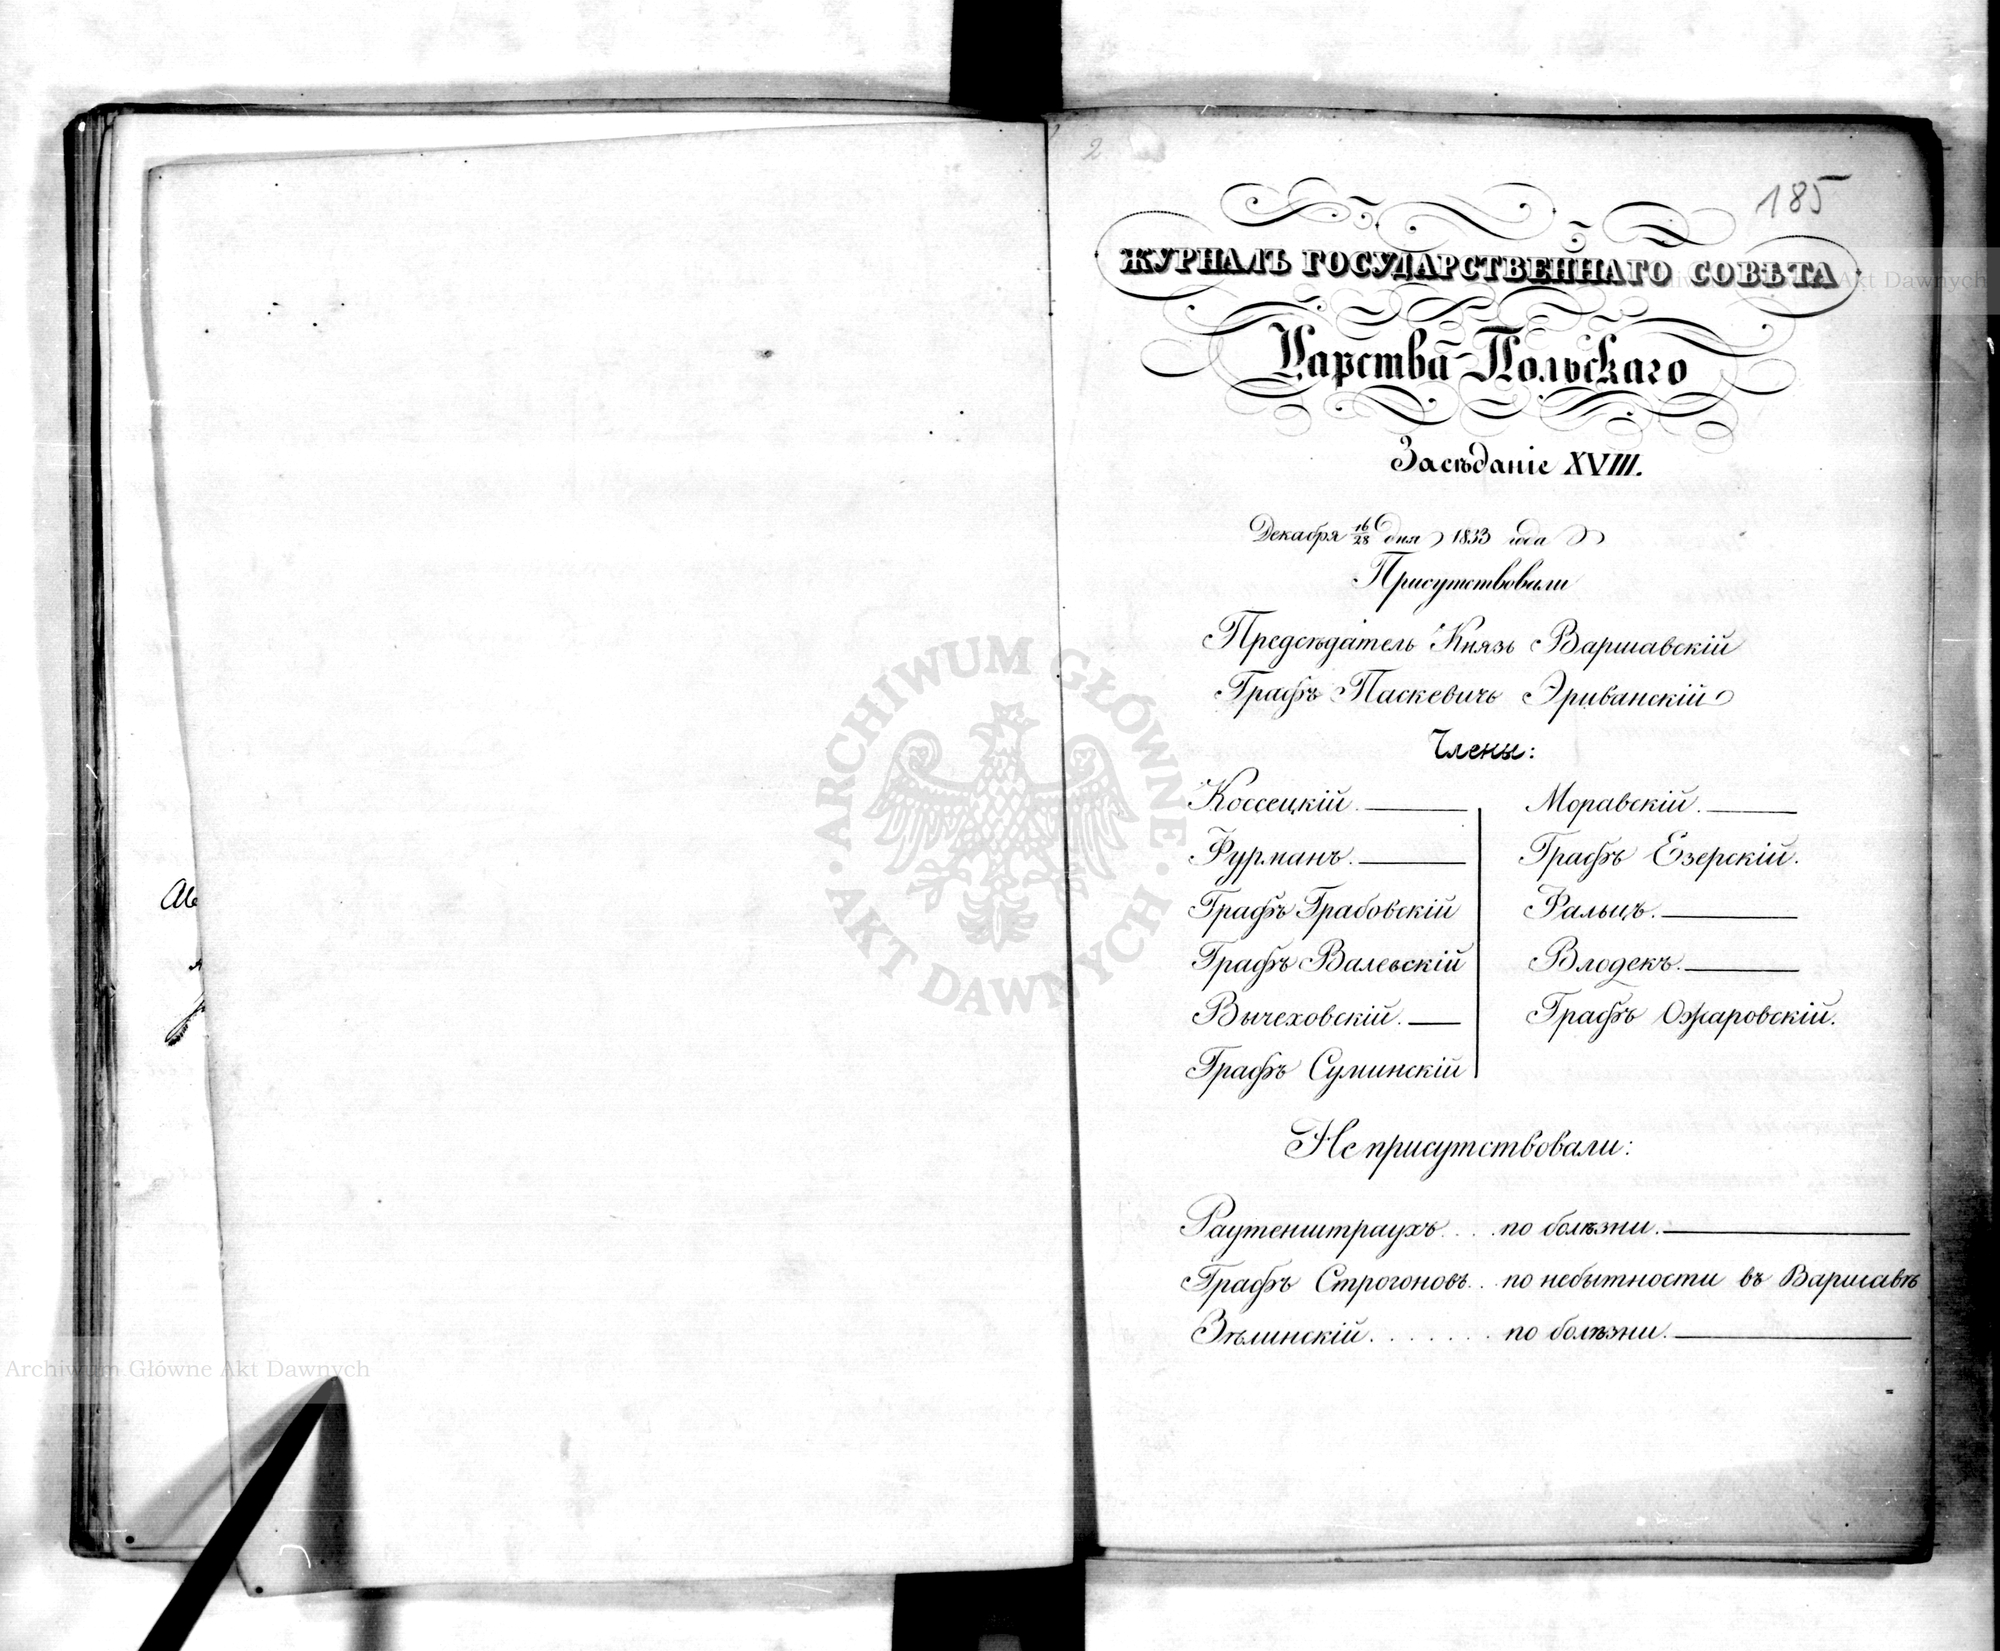 2
185
ЖУРНАЛЪ ГОСУДАРСТВЕННАГО СОВѢТА
Царства Польскаго
Засѣданіе XVIII.
Декабря 16/28 дня 1833 года
Присутствовали
Предсѣдатель Князь Варшавскій
Графъ Паскевичь Эриванскій
Члены:
Коссецкій.
Фурманъ.
Графъ Грабовскій
Графъ Валевскій
Вычеховскій.
Графъ Суминскій
Моравскій.
Графъ Езерскій.
Фальцъ.
Влодекъ.
Графъ Ожаровскій.
Не присутствовали:
Раутенштраухъ.... по болѣзни.
Графъ Строгоновъ.. по небытности въ Варшавѣ
Зѣлинскій....... по болѣзни.
ARCHIWUM GŁÓWNE AKT DAWNYCH
Archiwum Główne Akt Dawnych
Akt Dawnych